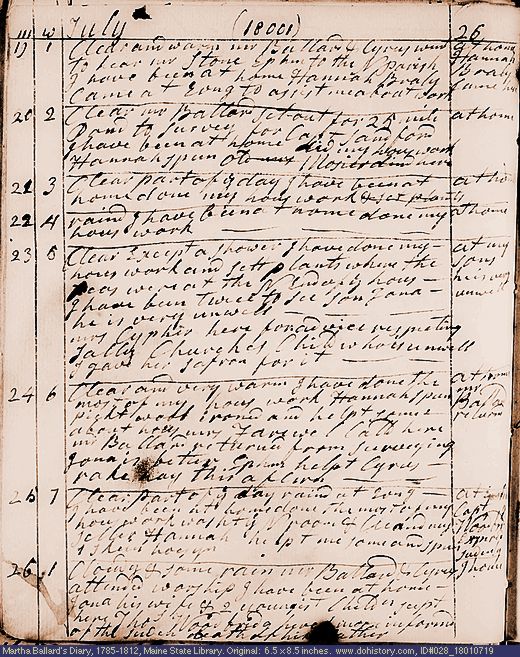 m w July (1801) 26
19 1 Clear and warm mr Ballard & Cyrus went at home
to hear mr Stone Ephm to the N Parish Hannah
I have been at home Hannah Braly Braly
Came at Evng to assist me about work Came here
20 2 Clear mr Ballard set out for 25 mile at home
Pond to survey for Capt Sandford
I have been at home did my hous work
Hannah spun
21 3 Clear part of ye day I have been at at home
home done my hous work & set plants
22 4 rain I have been at home done my at home
hous work
23 5 Clear Except a shower I have done my at my
hous work and sett plants where the sons
peas were at the hous he is very
I have been twice to see son Jona unwell
he is very unwell
mrs Cypher here for advice respecting
Sally Churches Child who is unwell
I gave her safron for it
24 6 Clear and very warm I have done the at home
most of my hous work Hannah spun mr
irond and helpt some Balld
about hous mrs Farewel Calld here returnd
mr Ballard returnd from Surveying
Jona is better Ephm helpt Cyrus
rake hay this afternn
25 7 Clear part of ye day raind at Evng at
I have been at home done the most of my Capt
hous work washt ye N room & Cleand my
seller Hannah helpt me some and spun
26 1 Clowdy & some rain mr Ballard & Cyrus I home
attend worship I have been at home
Jona his wife & 2 youngest Children supt
here informd
of the death of his Father
Martha Ballard's Diary, 1785-1812, Maine State Library. Original: 6.5 x 8.5 inches. www.dohistory.com, ID#028_18010719